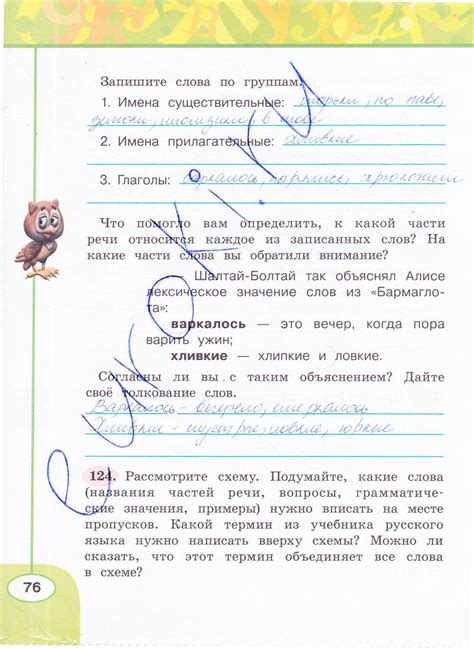 Запишите слова по группам.
1. Имена существительные: шорьки, по наве,
зелюки, мюмзики, в мове
2. Имена прилагательные: хливкие
3. Глаголы: варкалось, пырялись, хрюкотали
Что помогло вам определить, к какой части
речи относится каждое из записанных слов? На
какие части слова вы обратили внимание?
Шалтай-Болтай так объяснял Алисе
лексическое значение слов из «Бармагло-
та»:
варкалось — это вечер, когда пора
варить ужин;
хливкие — хлипкие и ловкие.
Согласны ли вы с таким объяснением? Дайте
своё толкование слов.
Варкалось - вечерело, смеркалось
Хливкие - шустрые, ловкие, юркие
124. Рассмотрите схему. Подумайте, какие слова
(названия частей речи, вопросы, грамматиче-
ские значения, примеры) нужно вписать на месте
пропусков. Какой термин из учебника русского
языка нужно написать вверху схемы? Можно ли
сказать, что этот термин объединяет все слова
в схеме?
76